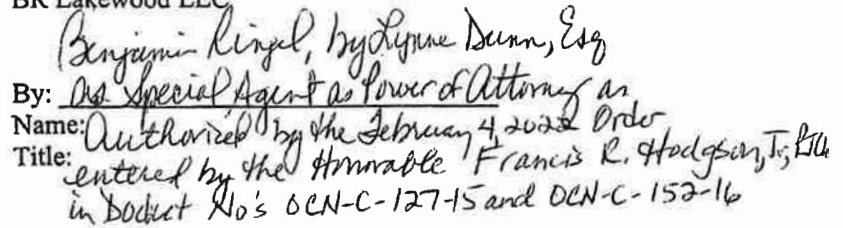 BR Lakewood LLC
Benjamin Ringel, by Lynne Dunn, Esq
By: as Special Agent as Power of Attorney as
Name: Authorized by the February 4, 2022 Order
Title: entered by the Honorable Francis R. Hodgson, Jr, PJCh
in Docket No's OCN-C-127-15 and OCN-C-152-16